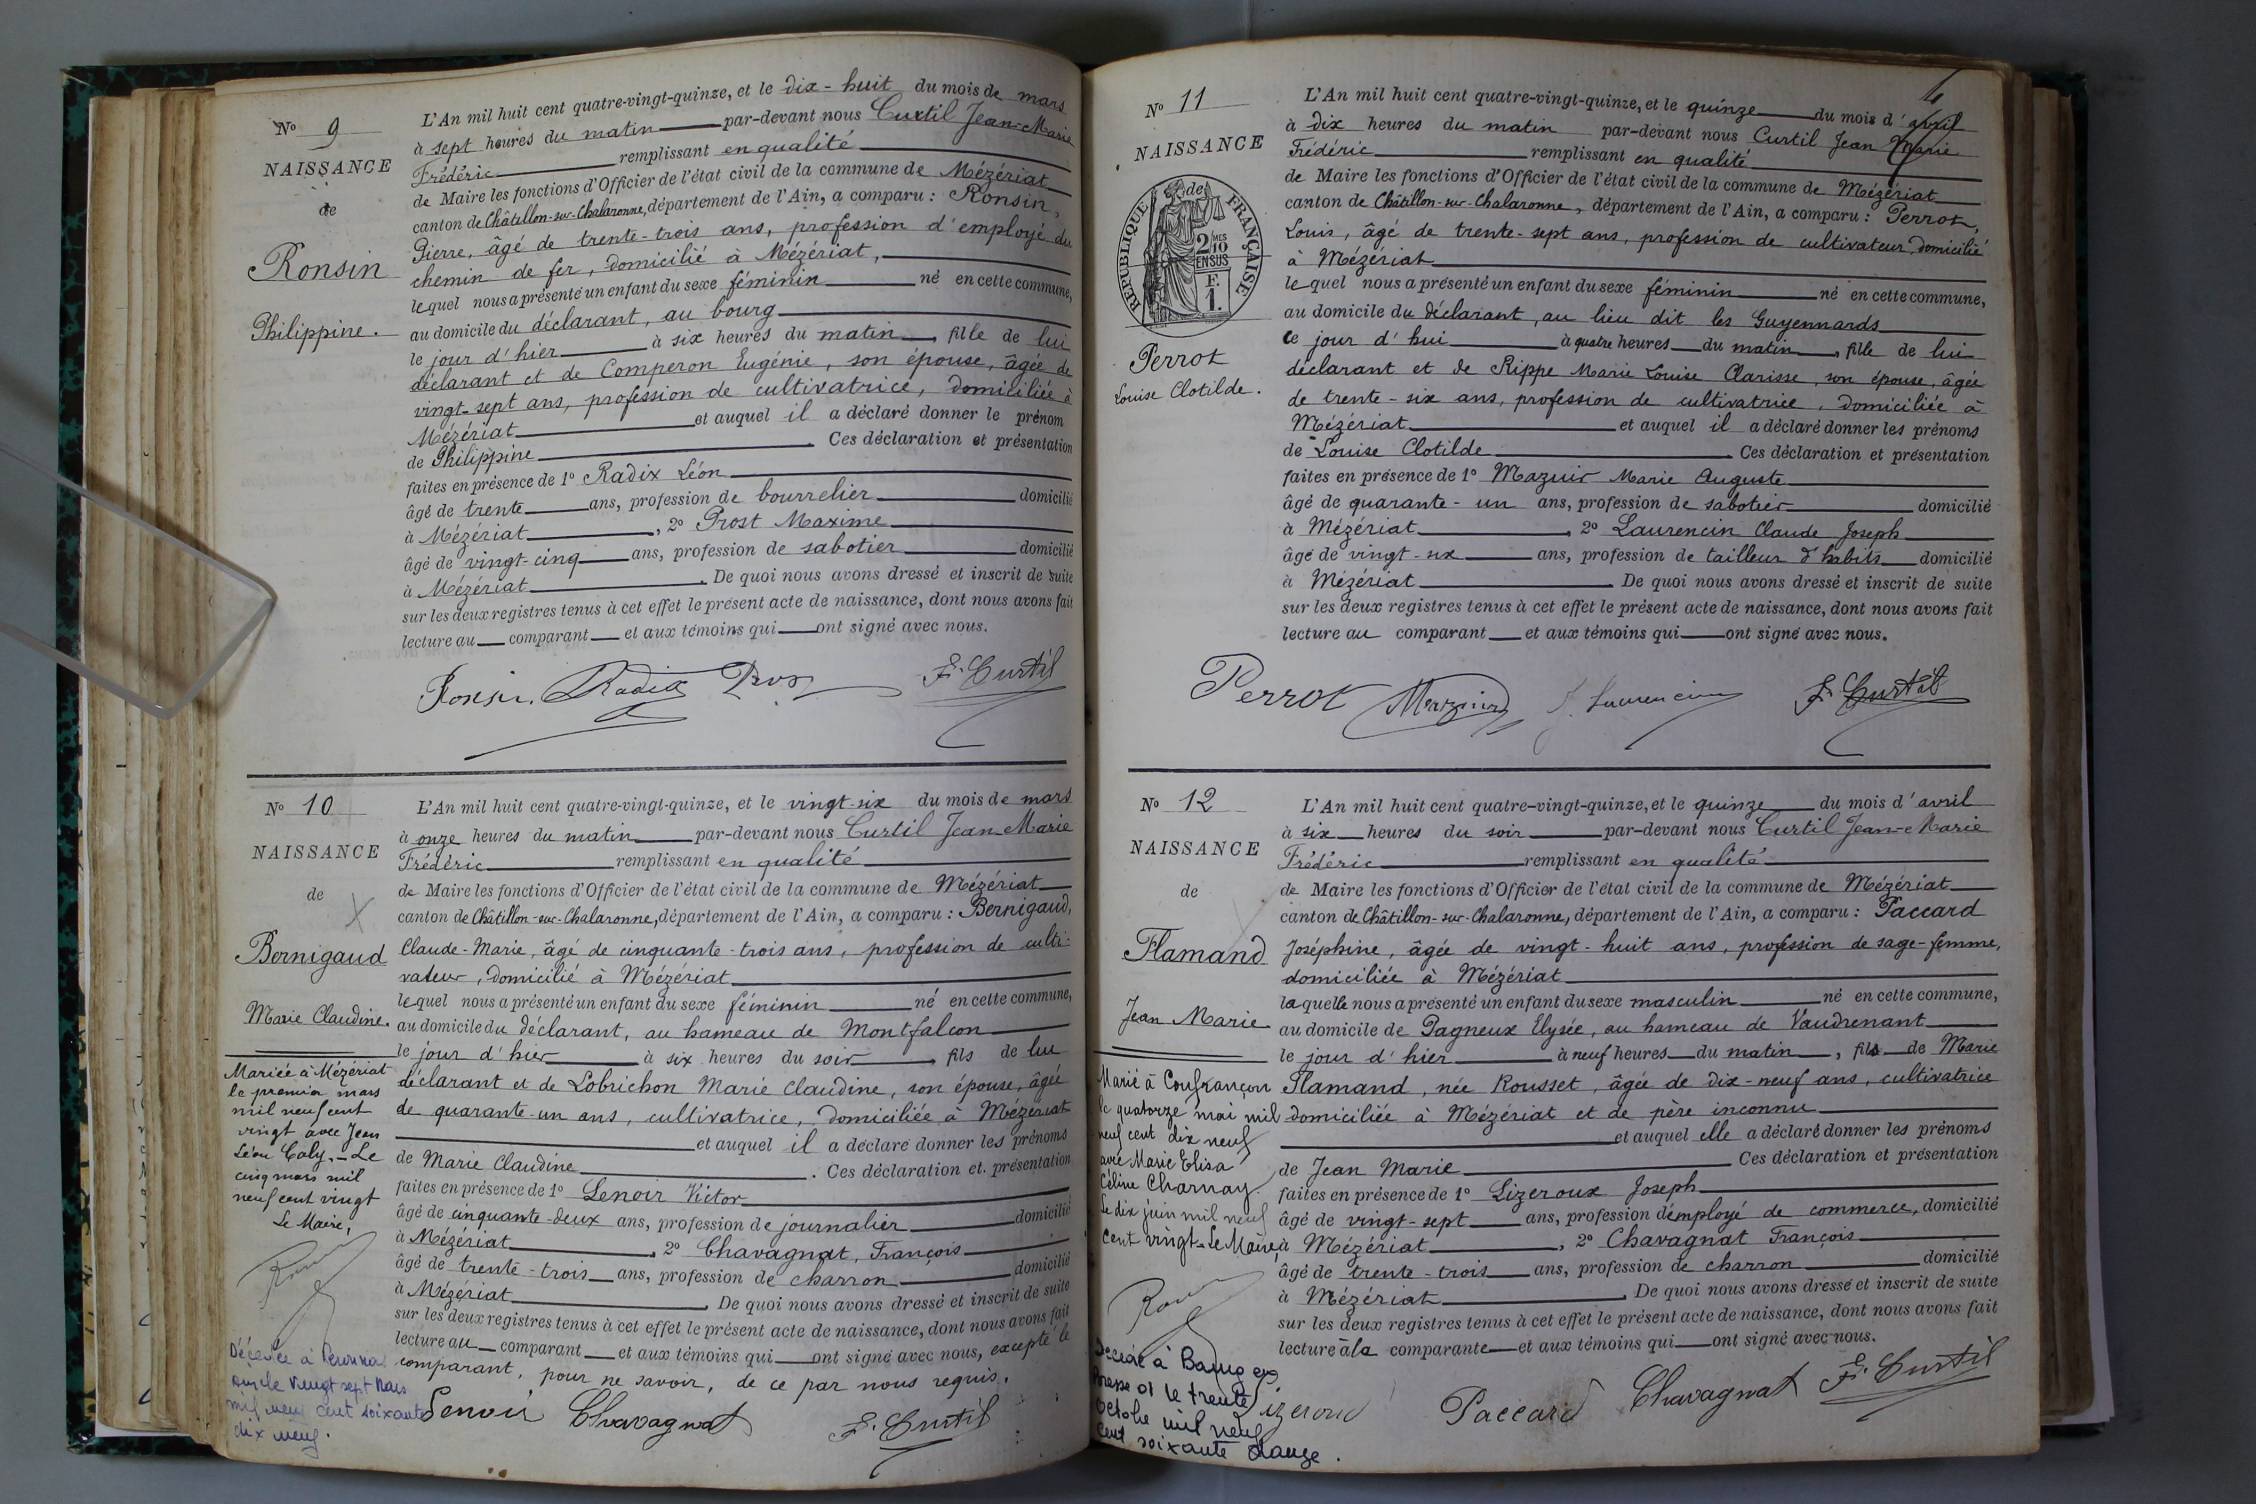 N° 9
NAISSANCE
de
Ronsin
Philippine.
L'An mil huit cent quatre-vingt-quinze, et le dix-huit du mois de mars
à sept heures du matin par-devant nous Curtil Jean-Marie
Frédéric remplissant en qualité
de Maire les fonctions d'Officier de l'état civil de la commune de Mézériat
canton de Châtillon-sur-Chalaronne, département de l'Ain, a comparu : Ronsin,
Pierre, âgé de trente-trois ans, profession d'employé du
chemin de fer, domicilié à Mézériat,
lequel nous a présenté un enfant du sexe féminin né en cette commune,
au domicile du déclarant, au bourg
le jour d'hier à six heures du matin, fille de lui
déclarant et de Comperon Eugénie, son épouse, âgée de
vingt-sept ans, profession de cultivatrice, domiciliée à
Mézériat et auquel il a déclaré donner le prénom
de Philippine Ces déclaration et présentation
faites en présence de 1° Radix Léon
âgé de trente ans, profession de bourrelier domicilié
à Mézériat, 2° Prost Maxime
âgé de vingt-cinq ans, profession de sabotier domicilié
à Mézériat. De quoi nous avons dressé et inscrit de suite
sur les deux registres tenus à cet effet le présent acte de naissance, dont nous avons fait
lecture au comparant et aux témoins qui ont signé avec nous.
Ronsin. Radix Prost F. Curtil
N° 10
NAISSANCE
de
Bernigaud
Marie Claudine.
Mariée à Mézériat
le premier mars
mil neuf cent
vingt avec Jean
Léon Caly. - Le
cinq mars mil
neuf cent vingt
Le Maire,
Décédée à Peronnas
Ain le vingt sept Mars
mil neuf cent soixante
dix neuf.
L'An mil huit cent quatre-vingt-quinze, et le vingt-six du mois de mars
à onze heures du matin par-devant nous Curtil Jean-Marie
Frédéric remplissant en qualité
de Maire les fonctions d'Officier de l'état civil de la commune de Mézériat
canton de Châtillon-sur-Chalaronne, département de l'Ain, a comparu : Bernigaud,
Claude-Marie, âgé de cinquante-trois ans, profession de culti-
vateur, domicilié à Mézériat
lequel nous a présenté un enfant du sexe féminin né en cette commune,
au domicile du déclarant, au hameau de Montfalcon
le jour d'hier à six heures du soir, fils de lui
déclarant et de Lobrichon Marie Claudine, son épouse, âgée
de quarante-un ans, cultivatrice, domiciliée à Mézériat
et auquel il a déclaré donner les prénoms
de Marie Claudine. Ces déclaration et présentation
faites en présence de 1° Lenoir Victor
âgé de cinquante-deux ans, profession de journalier domicilié
à Mézériat, 2° Chavagnat, François
âgé de trente-trois ans, profession de charron domicilié
à Mézériat. De quoi nous avons dressé et inscrit de suite
sur les deux registres tenus à cet effet le présent acte de naissance, dont nous avons fait
lecture au comparant et aux témoins qui ont signé avec nous, excepté le
comparant, pour ne savoir, de ce par nous requis.
Lenoir Chavagnat F. Curtil
N° 11
NAISSANCE
de
RÉPUBLIQUE FRANÇAISE
2/10 MES
EN SUS
F.
1.
Perrot
Louise Clotilde.
L'An mil huit cent quatre-vingt-quinze, et le quinze du mois d'avril
à dix heures du matin par-devant nous Curtil Jean Marie
Frédéric remplissant en qualité
de Maire les fonctions d'Officier de l'état civil de la commune de Mézériat
canton de Châtillon-sur-Chalaronne, département de l'Ain, a comparu : Perrot,
Louis, âgé de trente-sept ans, profession de cultivateur, domicilié
à Mézériat
lequel nous a présenté un enfant du sexe féminin né en cette commune,
au domicile du déclarant, au lieu dit les Guyennards
ce jour d'hui à quatre heures du matin, fille de lui
déclarant et de Rippe Marie Louise Clarisse, son épouse, âgée
de trente-six ans, profession de cultivatrice, domiciliée à
Mézériat et auquel il a déclaré donner les prénoms
de Louise Clotilde. Ces déclaration et présentation
faites en présence de 1° Mazuir Marie Auguste
âgé de quarante-un ans, profession de sabotier domicilié
à Mézériat, 2° Laurencin Claude Joseph
âgé de vingt-six ans, profession de tailleur d'habits domicilié
à Mézériat. De quoi nous avons dressé et inscrit de suite
sur les deux registres tenus à cet effet le présent acte de naissance, dont nous avons fait
lecture au comparant et aux témoins qui ont signé avec nous.
Perrot Mazuir J. Laurencin F. Curtil
N° 12
NAISSANCE
de
Flamand
Jean Marie
Marié à Confrançon
le quatorze mai mil
neuf cent dix neuf
avec Marie Elisa
Céline Charnay.
Le dix juin mil neuf
cent vingt - Le Maire,
Décédé à Bourg en
Bresse 01 le trente
Octobre mil neuf
cent soixante douze.
L'An mil huit cent quatre-vingt-quinze, et le quinze du mois d'avril
à six heures du soir par-devant nous Curtil Jean-Marie
Frédéric remplissant en qualité
de Maire les fonctions d'Officier de l'état civil de la commune de Mézériat
canton de Châtillon-sur-Chalaronne, département de l'Ain, a comparu : Paccard
Joséphine, âgée de vingt-huit ans, profession de sage-femme,
domiciliée à Mézériat
laquelle nous a présenté un enfant du sexe masculin né en cette commune,
au domicile de Pagneux Elysée, au hameau de Vaudrenant
le jour d'hier à neuf heures du matin, fils de Marie
Flamand, née Rousset, âgée de dix-neuf ans, cultivatrice
domiciliée à Mézériat et de père inconnu
et auquel elle a déclaré donner les prénoms
de Jean Marie Ces déclaration et présentation
faites en présence de 1° Lizeroux Joseph
âgé de vingt-sept ans, profession d'employé de commerce, domicilié
à Mézériat, 2° Chavagnat François
âgé de trente-trois ans, profession de charron domicilié
à Mézériat. De quoi nous avons dressé et inscrit de suite
sur les deux registres tenus à cet effet le présent acte de naissance, dont nous avons fait
lecture à la comparante et aux témoins qui ont signé avec nous.
Lizeroux Paccard Chavagnat F. Curtil